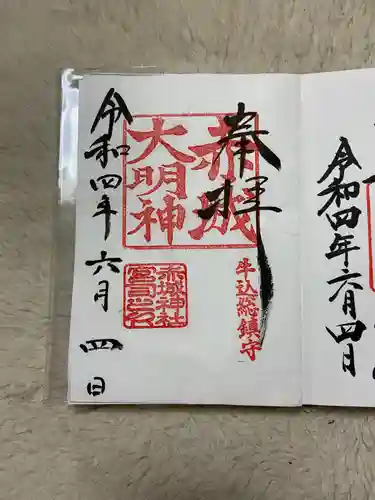 奉拝
赤城
大明神
牛込総鎮守
赤城神社
宮司之印
令和四年六月四日
令和四年六月四日